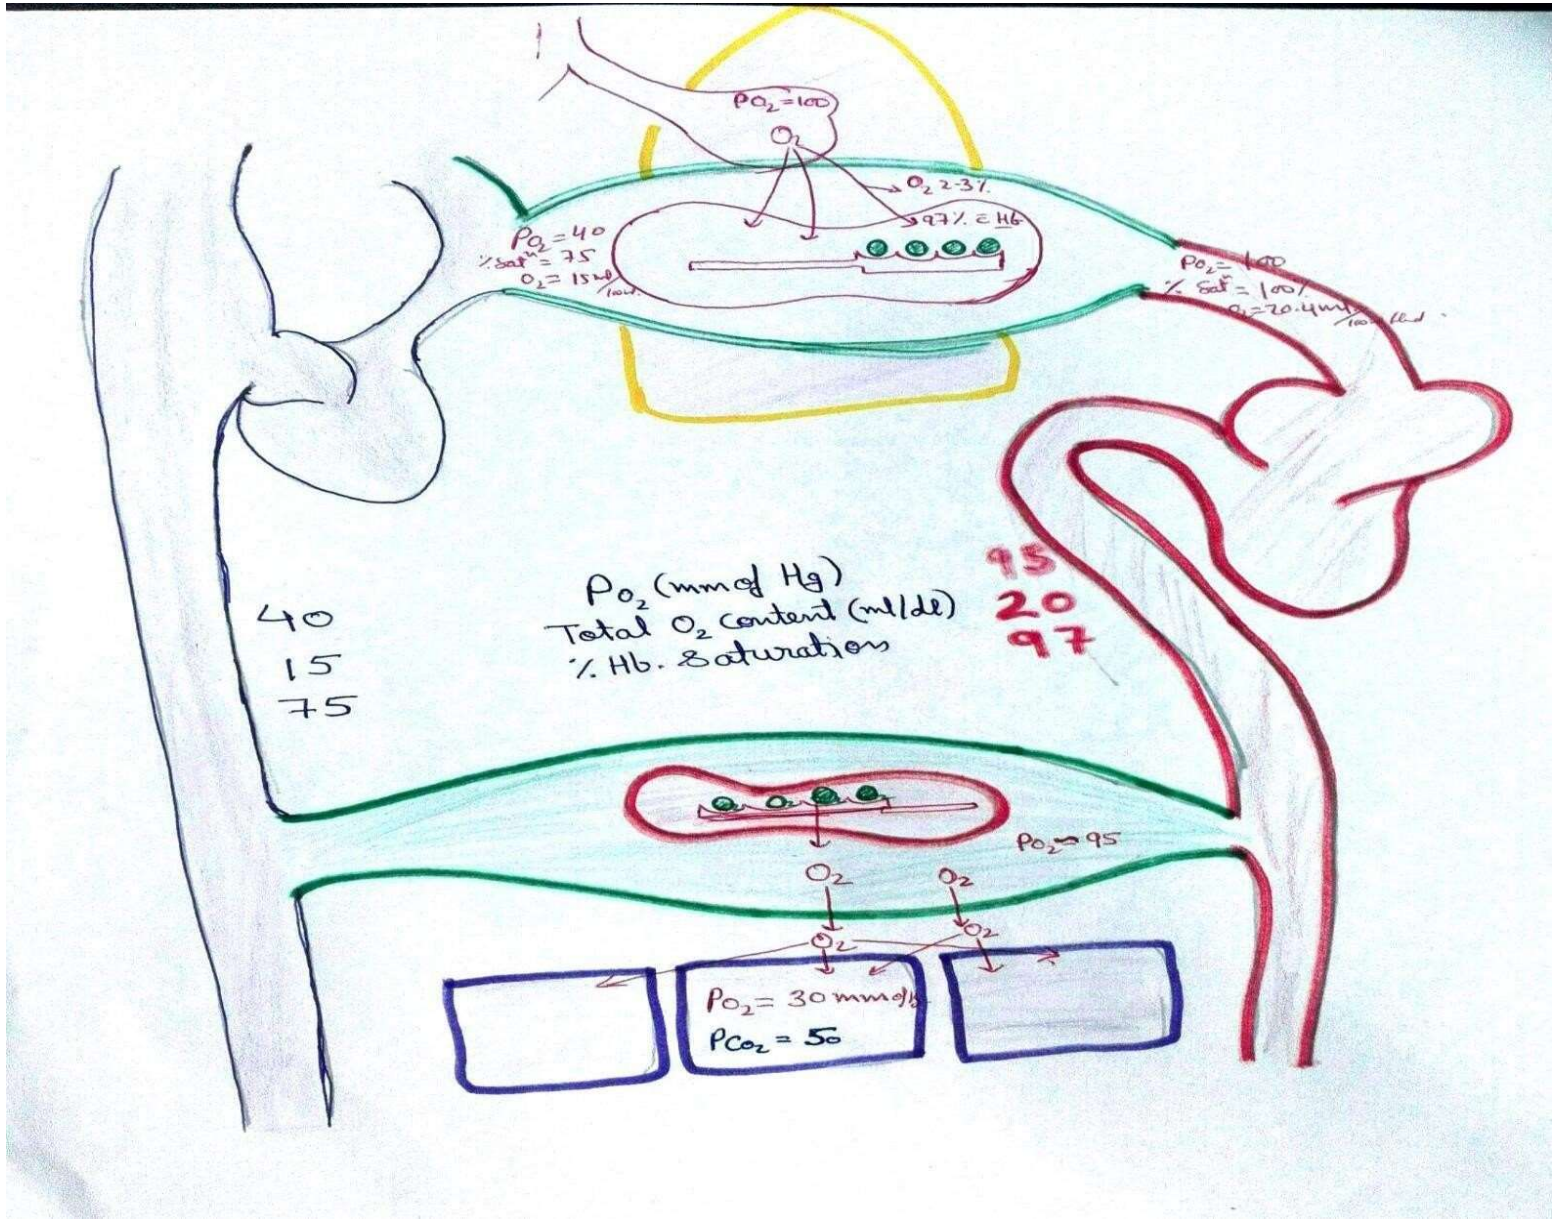 PO₂=100
O₂
O₂ 2-3%
97% c̄ Hb
PO₂ = 40
% Satⁿ = 75
O₂ = 15 ml/100ml
PO₂ = 100
% Satⁿ = 100%
O₂ = 20.4 ml/100ml blood
PO₂ (mm of Hg)
Total O₂ content (ml/dl)
% Hb. Saturation
40
15
75
95
20
97
PO₂ ≈ 95
O₂ O₂
O₂ O₂
PO₂ = 30 mm of
PCO₂ = 50